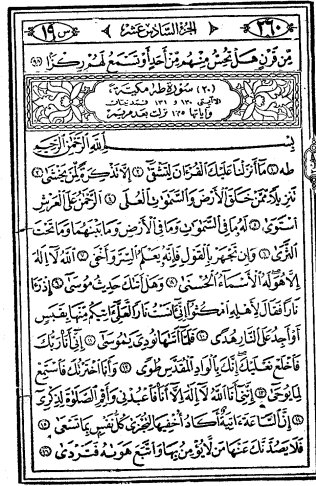 س ١٩ الجزء السادس عشر ٢٦٠
مِّن قَرْنٍ هَلْ تُحِسُّ مِنْهُم مِّنْ أَحَدٍ أَوْ تَسْمَعُ لَهُمْ رِكْزًا ٩٨
(٢٠) سورة طه مكية
الآيتي ١٣٠ و ١٣١ فمدنيتان
وآياتها ١٣٥ نزلت بعد مريم
بِسْمِ اللَّهِ الرَّحْمَٰنِ الرَّحِيمِ
طه ١ مَا أَنزَلْنَا عَلَيْكَ الْقُرْءَانَ لِتَشْقَىٰ ٢ إِلَّا تَذْكِرَةً لِّمَن يَخْشَىٰ ٣
تَنزِيلًا مِّمَّنْ خَلَقَ الْأَرْضَ وَالسَّمَٰوَٰتِ الْعُلَى ٤ الرَّحْمَٰنُ عَلَى الْعَرْشِ
اسْتَوَىٰ ٥ لَهُ مَا فِي السَّمَٰوَٰتِ وَمَا فِي الْأَرْضِ وَمَا بَيْنَهُمَا وَمَا تَحْتَ
الثَّرَىٰ ٦ وَإِن تَجْهَرْ بِالْقَوْلِ فَإِنَّهُ يَعْلَمُ السِّرَّ وَأَخْفَى ٧ اللَّهُ لَا إِلَٰهَ
إِلَّا هُوَ لَهُ الْأَسْمَاءُ الْحُسْنَىٰ ٨ وَهَلْ أَتَىٰكَ حَدِيثُ مُوسَىٰ ٩ إِذْ رَءَا
نَارًا فَقَالَ لِأَهْلِهِ امْكُثُوا إِنِّي ءَانَسْتُ نَارًا لَّعَلِّي ءَاتِيكُم مِّنْهَا بِقَبَسٍ
أَوْ أَجِدُ عَلَى النَّارِ هُدًى ١٠ فَلَمَّا أَتَىٰهَا نُودِيَ يَٰمُوسَىٰ ١١ إِنِّي أَنَا رَبُّكَ
فَاخْلَعْ نَعْلَيْكَ إِنَّكَ بِالْوَادِ الْمُقَدَّسِ طُوًى ١٢ وَأَنَا اخْتَرْتُكَ فَاسْتَمِعْ
لِمَا يُوحَىٰ ١٣ إِنَّنِي أَنَا اللَّهُ لَا إِلَٰهَ إِلَّا أَنَا فَاعْبُدْنِي وَأَقِمِ الصَّلَوٰةَ لِذِكْرِي
١٤ إِنَّ السَّاعَةَ ءَاتِيَةٌ أَكَادُ أُخْفِيهَا لِتُجْزَىٰ كُلُّ نَفْسٍ بِمَا تَسْعَىٰ ١٥
فَلَا يَصُدَّنَّكَ عَنْهَا مَن لَّا يُؤْمِنُ بِهَا وَاتَّبَعَ هَوَىٰهُ فَتَرْدَىٰ ١٦